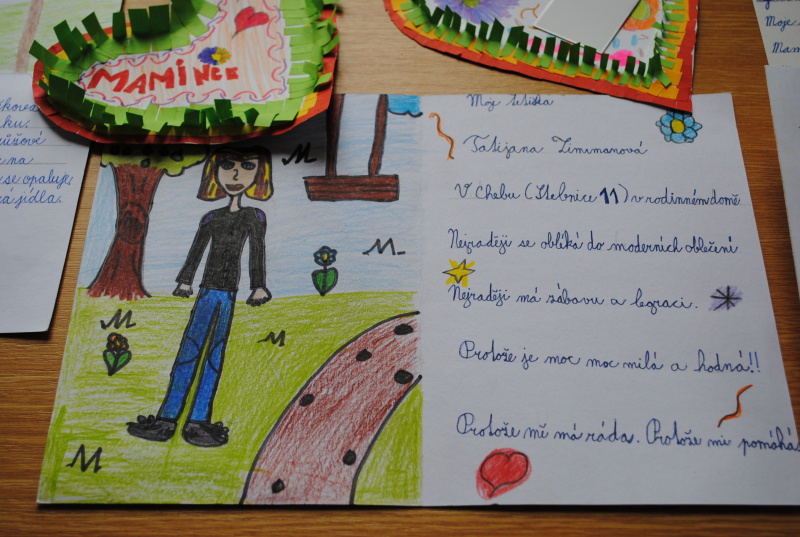 MAMINCE
Moje tetička
Tatijana Zimmanová
V Chebu (Stebnice 11) v rodinném domě
Nejraději se obléká do moderních oblečení
Nejraději má zábavu a legraci.
Protože je moc moc milá a hodná!!
Protože mě má ráda. Protože mi pomáhá
ku.
na
se opaluje,
jídla.
Moje
M
M
M
M
M